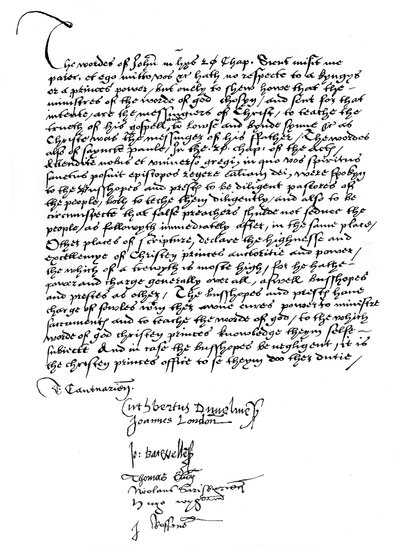 The wordes of John in hys 20 Chap. Sicut misit me
pater, et ego mitto vos &c hath no respecte to a kyngys
or a princes power, but onely to shew howe that the
ministres of the worde of god chosyn, and sent for that
intente, are the messingers of Christ, to teache the
trueth of his gospell, to lowse and bynde synne &c as
Christe was the messynger of his ffather, The wordes
also of saynte Paule, in the 20 chap. of the actes,
Attendite vobis et universo gregi, in quo vos spiritus
sanctus posuit episcopos regere ecclesiam dei, were spokyn
to the Busshopes and prestes to be diligent pastores of
the people, both to teche them diligently, and also to be
circumspecte that false preachers shulde not seduce the
people, as followyth immediately after, in the same place,
Other places of scripture, declare the highnesse and
excellencye of Christen princes autoritie and power,
the which of a trewyth is moste high, for he hathe
power and charge generally over all, aswell busshopes
and prestes as other, The busshopes and prestes have
charge of sowles within ther awne cures power to ministre
sacraments and to teache the worde of god, to the which
worde of god christen princes knowledge theym selfe
subiect And in case the busshopes be negligent, it is
the christen princes office to se theym doo ther dutie,
T. Cantuarien
Cuthbertus Dunelmens
Joannes London
Thomas Elien
Nicolaus Sarisburien
J Roffens